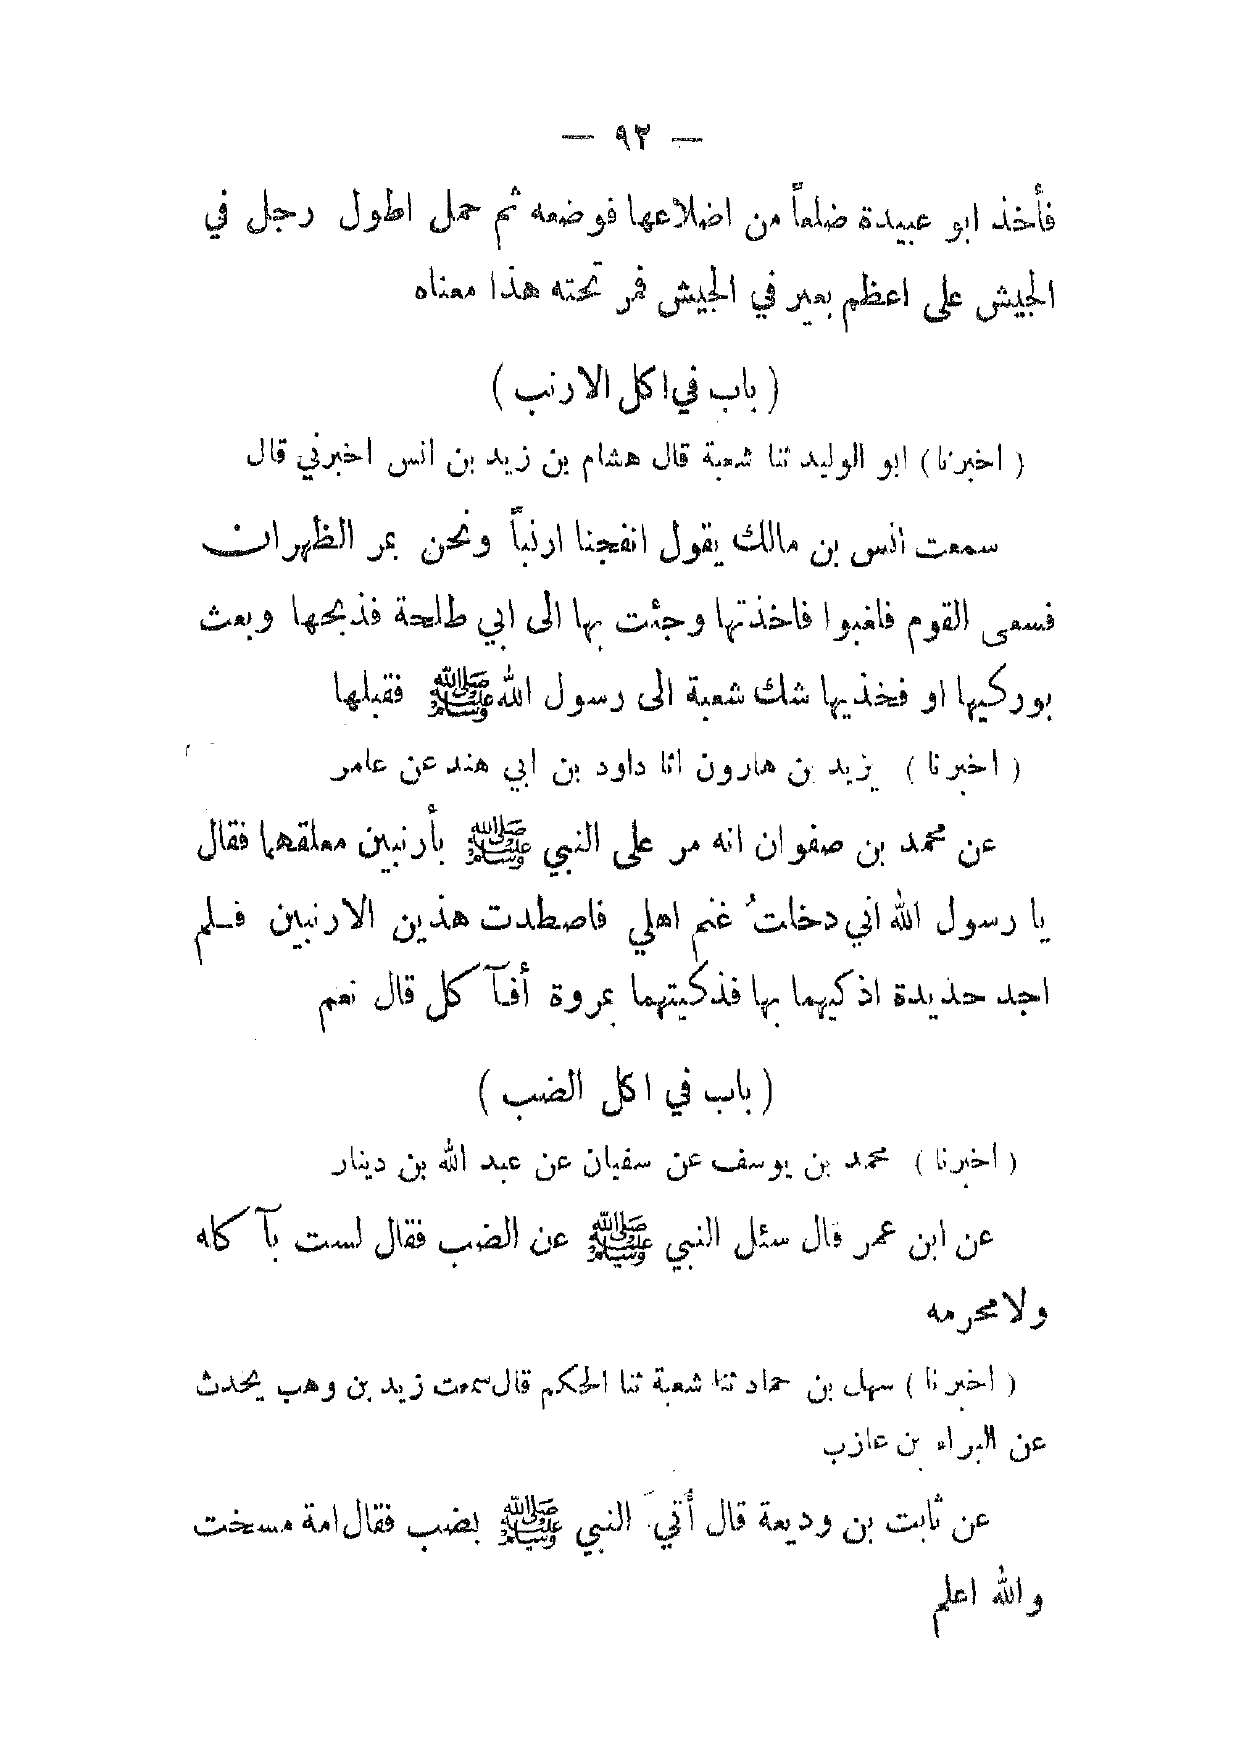 — ٩٢ —
فأخذ ابو عبيدة ضلعاً من اضلاعها فوضعه ثم حمل اطول رجل في
الجيش على اعظم بعير في الجيش فمر تحته هذا معناه
( باب في اكل الارنب )
( اخبرنا ) ابو الوليد ثنا شعبة قال هشام بن زيد بن انس اخبرني قال
سمعت انس بن مالك يقول انفجنا ارنباً ونحن بمر الظهران
فسعى القوم فلغبوا فاخذتها وجئت بها الى ابي طلحة فذبحها وبعث
بوركيها او فخذيها شك شعبة الى رسول الله ﷺ فقبلها
( اخبرنا ) يزيد بن هارون انا داود بن ابي هند عن عامر
عن محمد بن صفوان انه مر على النبي ﷺ بأرنبين معلقهما فقال
يا رسول الله اني دخلتُ غنم اهلي فاصطدت هذين الارنبين فلم
اجد حديدة اذكيهما بها فذكيتهما بمروة أفآكل قال نعم
( باب في اكل الضب )
( اخبرنا ) محمد بن يوسف عن سفيان عن عبد الله بن دينار
عن ابن عمر قال سئل النبي ﷺ عن الضب فقال لست بآكله
ولا محرمه
( اخبرنا ) سهل بن حماد ثنا شعبة ثنا الحكم قال سمعت زيد بن وهب يحدث
عن البراء بن عازب
عن ثابت بن وديعة قال أتي النبي ﷺ بضب فقال امة مسخت
والله اعلم